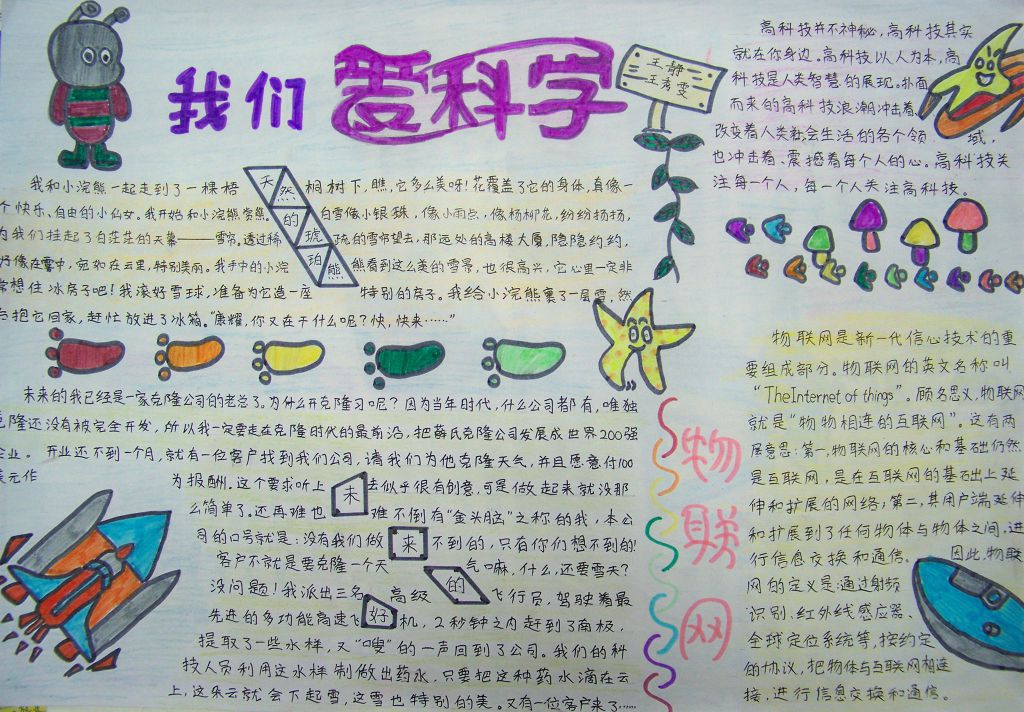 我们爱科学
王静
王秀雯
高科技并不神秘,高科技其实
就在你身边。高科技以人为本,高
科技是人类智慧的展现。扑面
而来的高科技浪潮冲击着,
改变着人类社会生活的各个领域,
也冲击着、震撼着每个人的心。高科技关
注每一个人,每一个人关注高科技。
天然的琥珀熊
我和小浣熊一起走到了一棵梧桐树下,瞧,它多么美呀!花覆盖了它的身体,真像一
个快乐、自由的小仙女。我开始和小浣熊赏熊。白雪像小银珠,像小雨点,像杨柳花,纷纷扬扬,
为我们挂起了白茫茫的天幕——雪帘。透过稀疏的雪帘望去,那远处的高楼大厦,隐隐约约,
好像在雾中,宛如在云里,特别美丽。我手中的小浣熊看到这么美的雪景,也很高兴,它心里一定非
常想住冰房子吧!我滚好雪球,准备为它造一座特别的房子。我给小浣熊裹了一层雪,然
后抱它回家,赶忙放进了冰箱。“康耀,你又在干什么呢?快,快来……”
未来的好
未来的我已经是一家克隆公司的老总了。为什么开克隆司呢?因为当年时代,什么公司都有,唯独
克隆还没有被完全开发,所以我一定要走在克隆时代的最前沿,把薛氏克隆公司发展成世界200强
企业。开业还不到一个月,就有一位客户找到我们公司,请我们为他克隆天气,并且愿意付100
美元作
为报酬。这个要求听上去似乎很有创意,可是做起来就没那
么简单了。还再难也难不倒有“金头脑”之称的我,本公
司的口号就是:没有我们做不到的,只有你们想不到的!
客户不就是要克隆一个天气嘛,什么,还要雪天?
没问题!我派出三名高级飞行员,驾驶着最
先进的多功能高速飞机,2秒钟之内赶到了南极,
提取了一些水样,又“嗖”的一声回到了公司。我们的科
技人员利用这水样制做出药水,只要把这种药水滴在云
上,这朵云就会下起雪,这雪也特别的美。又有一位客户来了……
物联网
物联网是新一代信心技术的重
要组成部分。物联网的英文名称叫
“TheInternet of things”。顾名思义,物联网
就是“物物相连的互联网”。这有两
层意思:第一,物联网的核心和基础仍然
是互联网,是在互联网的基础上延
伸和扩展的网络;第二,其用户端延伸
和扩展到了任何物体与物体之间,进
行信息交换和通信。因此,物联
网的定义是:通过射频
识别、红外线感应器、
全球定位系统等,按约定
的协议,把物体与互联网相连
接,进行信息交换和通信。